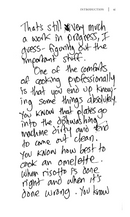 INTRODUCTION
That's still very much
a work in progress, I
guess - figuring out the
important stuff.
One of the comforts
of cooking professionally
is that you end up know-
ing some things absolutely.
You know that plates go
into the dishwashing
machine dirty and
to come out clean.
You know how best to
cook an omelette.
When risotto is done
right and when it's
done wrong. You know